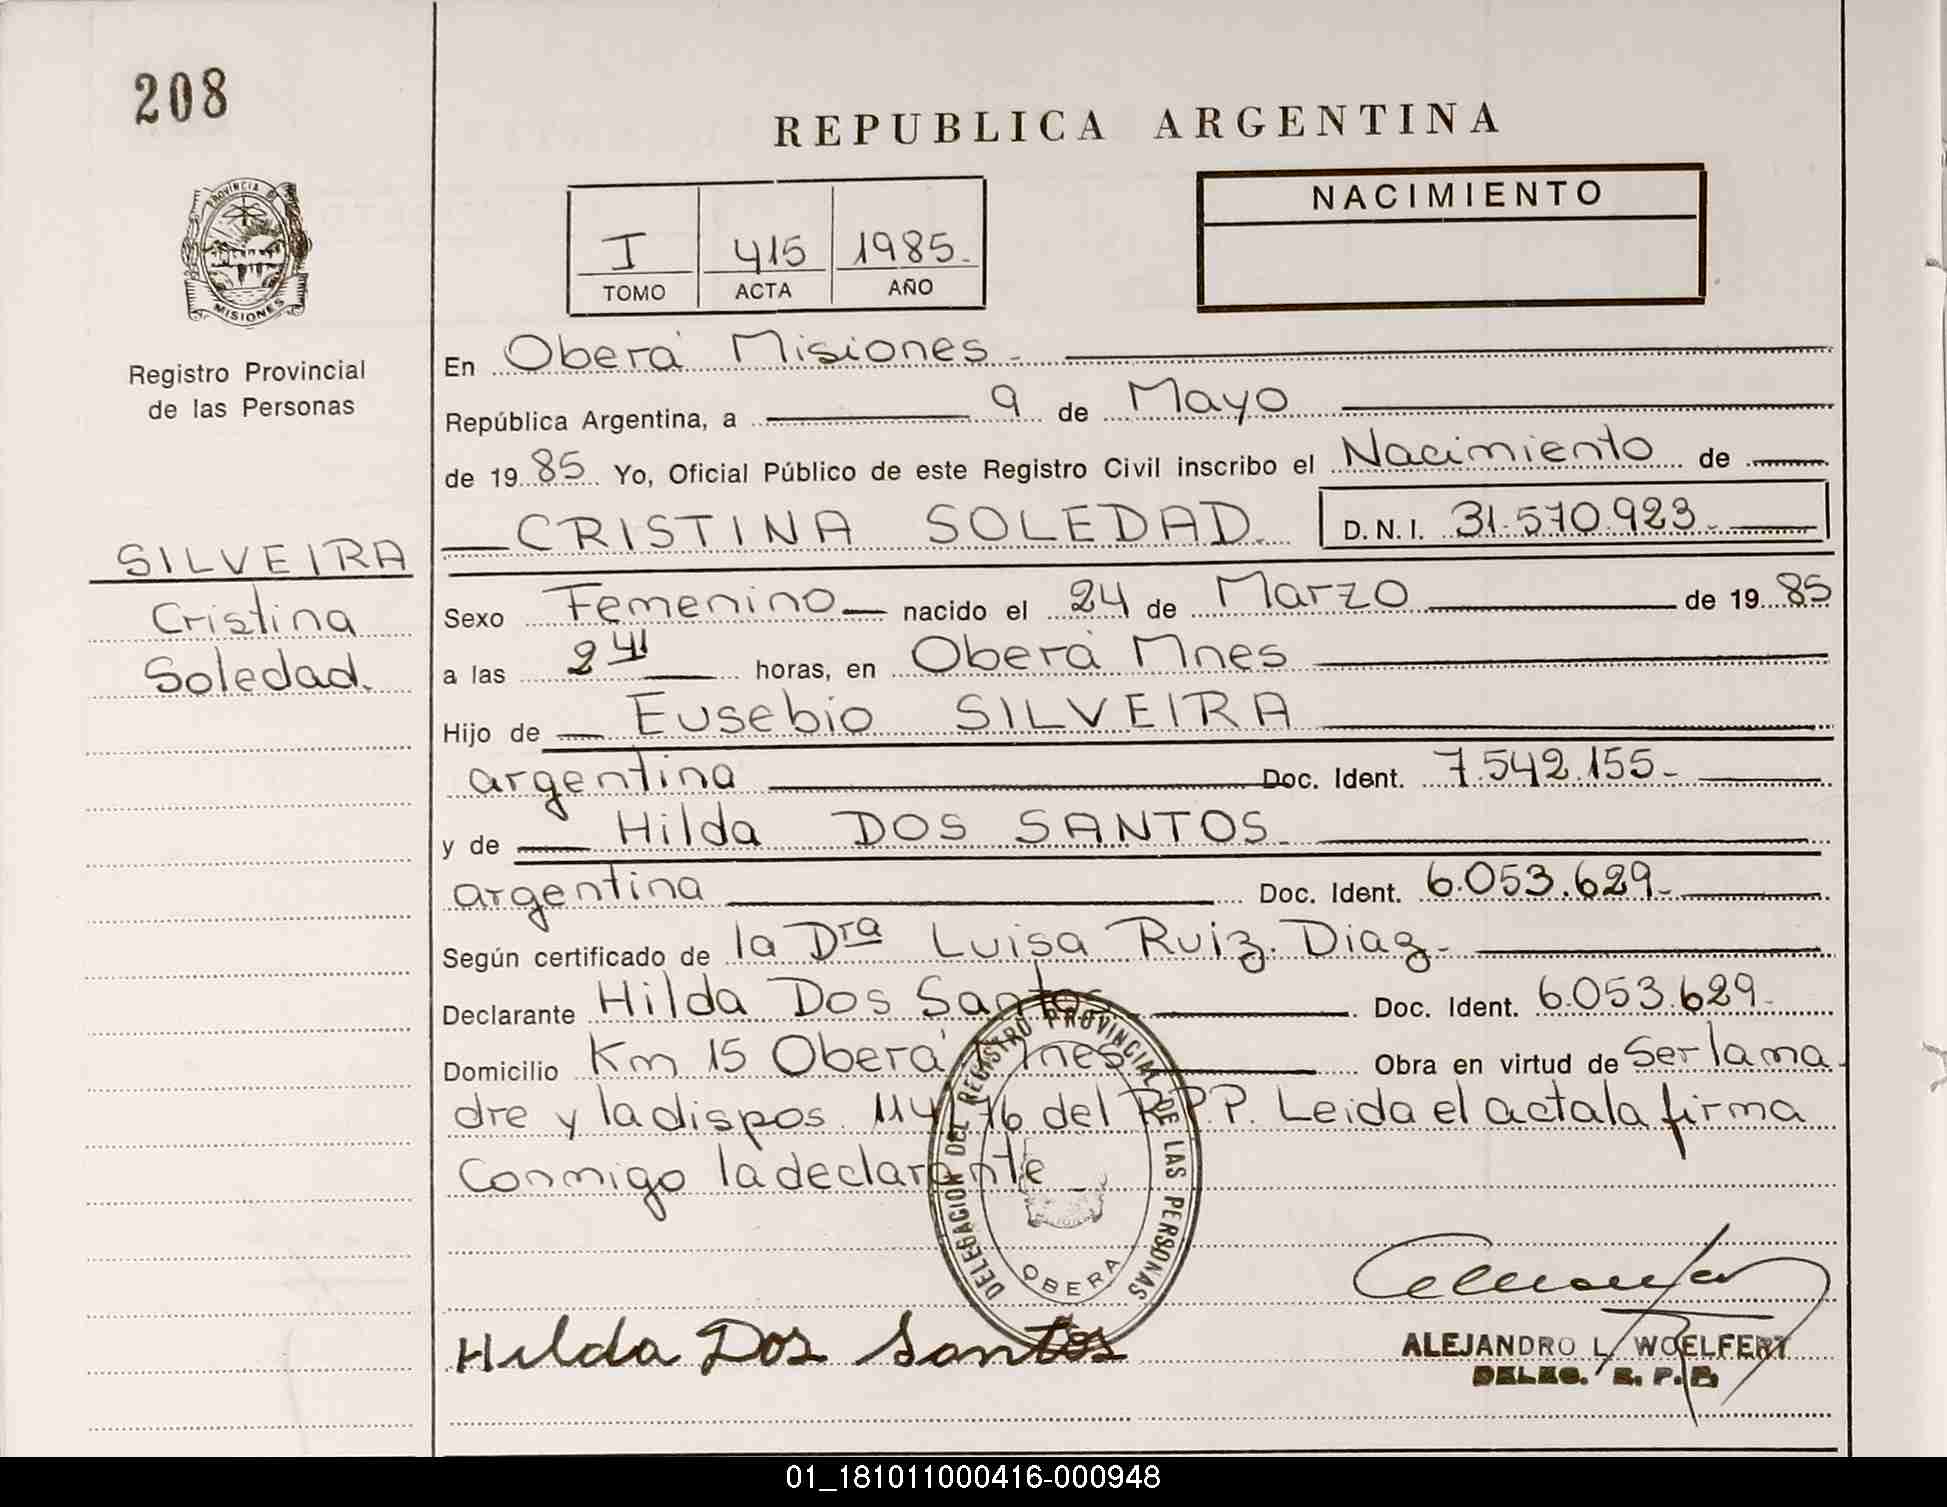 208
REPUBLICA ARGENTINA
PROVINCIA DE
MISIONES
Registro Provincial
de las Personas
I 415 1985.
TOMO ACTA AÑO
NACIMIENTO
En Oberá Misiones.
República Argentina, a 9 de Mayo
de 1985 Yo, Oficial Público de este Registro Civil inscribo el Nacimiento de
CRISTINA SOLEDAD. D.N.I. 31.570.923.
SILVEIRA
Cristina
Soledad.
Sexo Femenino nacido el 24 de Marzo de 1985
a las horas, en Oberá Mnes
Hijo de Eusebio SILVEIRA
argentina Doc. Ident. 7.542.155.
y de Hilda DOS SANTOS
argentina Doc. Ident. 6.053.629.
Según certificado de la Dra Luisa Ruiz. Diaz.
Declarante Hilda Dos Santos Doc. Ident. 6.053.629.
Domicilio Km 15 Oberá Mnes Obra en virtud de Ser la ma
dre y la dispos. 114/76 del R.P.P. Leida el acta la firma
Conmigo la declarante
DELEGACION DEL REGISTRO PROVINCIAL DE LAS PERSONAS
OBERA
Hilda Dos Santos
ALEJANDRO L. WOELFERT
DELEG. R. P. P.
01_181011000416-000948